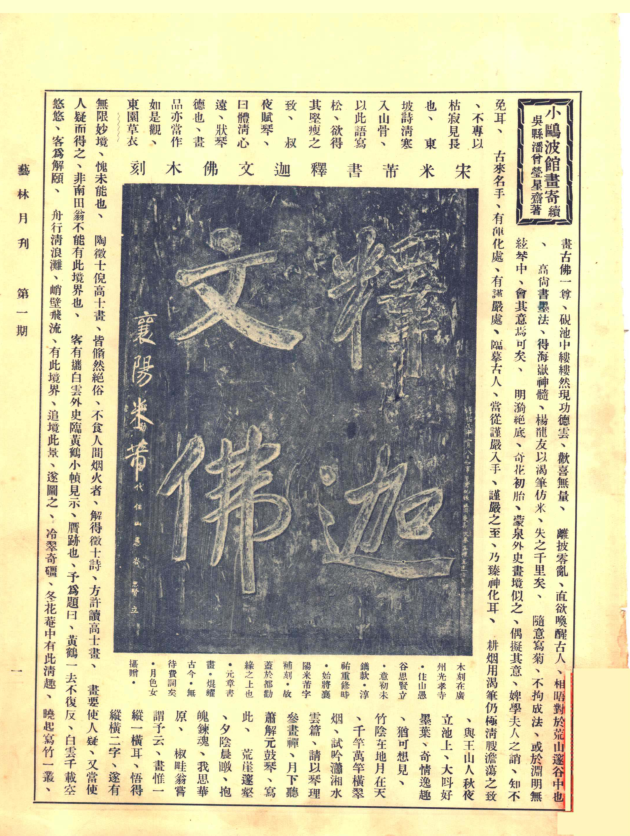 小鷗波館畫寄 續
吳縣潘曾瑩星齋著
畫古佛一尊、硯池中縷縷然現功德雲、歡喜無量、 離披零亂、直欲喚醒古人、相晤對於荒山邃谷中也
、 高尚書墨法、得海嶽神髓、楊龍友以渴筆仿米、失之千里矣、 隨意寫菊、不拘成法、或於淵明無
絃琴中、會其意焉可矣、 明漪絕底、奇花初胎、蒙泉外史畫境似之、偶擬其意、婢學夫人之誚、知不
免耳、 古來名手、有神化處、有謹嚴處、臨摹古人、當從謹嚴入手、謹嚴之至、乃臻神化耳、 耕烟用渴筆仍極清腴澹蕩之致
、不專以
枯寂見長
也、 東
坡詩清寒
入山骨、
以此語寫
松、欲得
其堅瘦之
致、 叔
夜賦琴、
曰體清心
遠、狀琴
德也、畫
品亦當作
如是觀、
東園草衣
、與王山人秋夜
立池上、大呌好
墨葉、奇情逸趣
、猶可想見、
竹陰在地月在天
、千竿萬竿橫翠
烟、試吟瀟湘水
雲篇、請以琴理
參畫禪、月下聽
蕭解元鼓琴、寫
此、 荒崖邃壑
、夕陰晨暾、抱
魄鍊魂、我思華
原、 椒畦翁嘗
謂予云、畫惟一
縱一橫耳、悟得
縱橫二字、遂有
無限妙境、愧未能也、 陶徵士倪高士畫、皆翛然絕俗、不食人間烟火者、解得徵士詩、方許讀高士畫、 畫要使人疑、又當使
人疑而得之、非南田翁不能有此境界也、 客有攜白雲外史臨黃鶴小幀見示、贗跡也、予爲題曰、黃鶴一去不復反、白雲千載空
悠悠、客爲解頤、 舟行清浪灘、峭壁飛流、有此境界、追境此景、遂圖之、冷翠奇礓、冬花菴中有此清趣、曉起寫竹一叢、
宋米芾書釋迦文佛木刻
釋迦
文佛
襄陽米芾
木刻在廣
州光孝寺
・住山愚
谷思賢立
・意初未
鐫款・淳
祐重修時
・始將襄
陽米芾字
補刻・故
蓋於都勸
緣之上也
・元章書
畫・焜耀
古今・無
待費詞矣
・月色女
攝贈・
藝林月刊 第一期